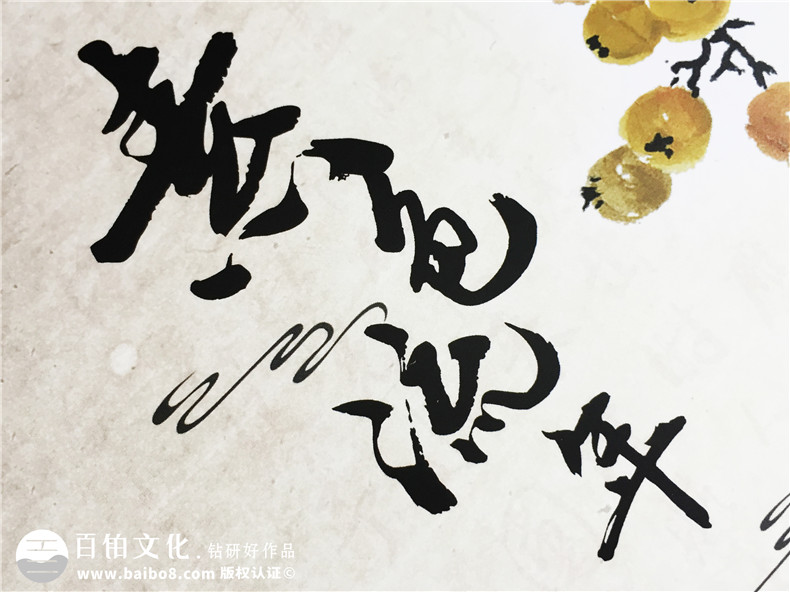 流年
百铂文化.钻研好作品
www.baibo8.com 版权认证©